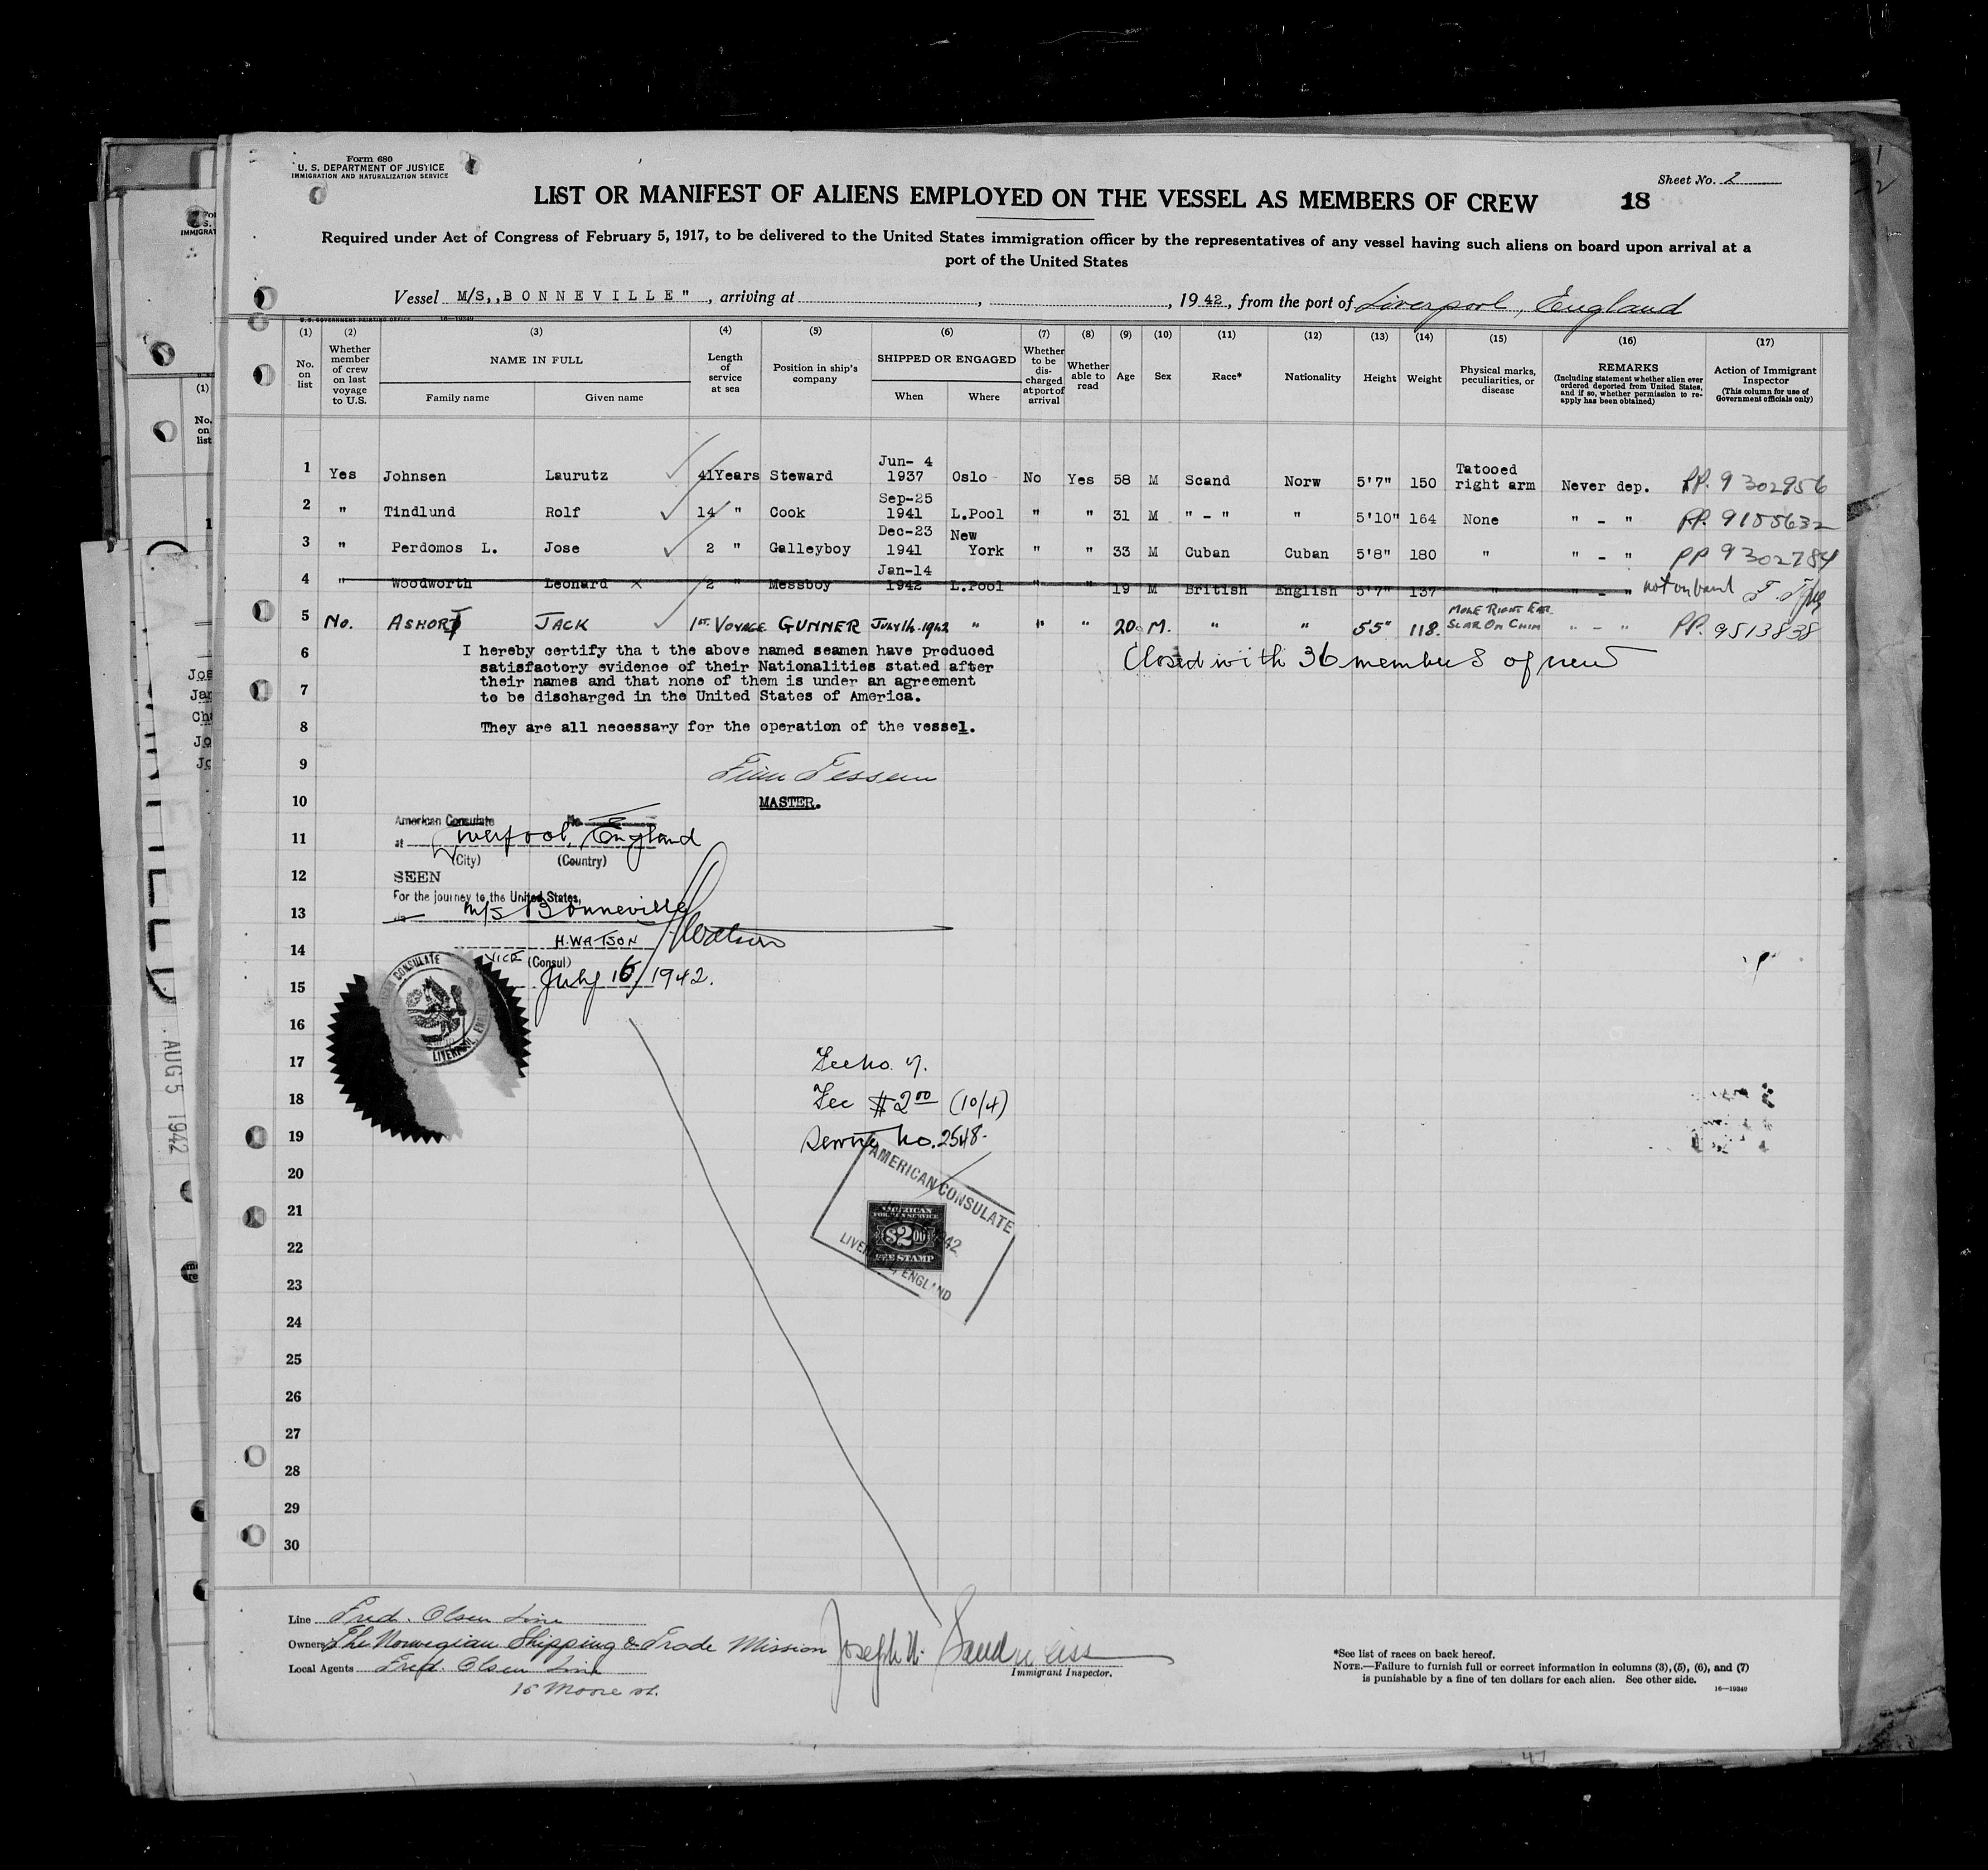 Form 680
U. S. DEPARTMENT OF JUSTICE
IMMIGRATION AND NATURALIZATION SERVICE
Sheet No. 2
LIST OR MANIFEST OF ALIENS EMPLOYED ON THE VESSEL AS MEMBERS OF CREW
18
Required under Act of Congress of February 5, 1917, to be delivered to the United States immigration officer by the representatives of any vessel having such aliens on board upon arrival at a
port of the United States
Vessel M/S,,BONNEVILLE", arriving at , , 1942, from the port of Liverpool, England
U. S. GOVERNMENT PRINTING OFFICE 16—19349
(1) (2) (3) (4) (5) (6) (7) (8) (9) (10) (11) (12) (13) (14) (15) (16) (17)
No. on list
Whether member of crew on last voyage to U.S.
NAME IN FULL
Family name
Given name
Length of service at sea
Position in ship's company
SHIPPED OR ENGAGED
When
Where
Whether to be discharged at port of arrival
Whether able to read
Age
Sex
Race*
Nationality
Height
Weight
Physical marks, peculiarities, or disease
REMARKS
(Including statement whether alien ever ordered deported from United States, and if so, whether permission to reapply has been obtained)
Action of Immigrant Inspector
(This column for use of Government officials only)
1 Yes Johnsen Laurutz 41Years Steward Jun- 4 1937 Oslo No Yes 58 M Scand Norw 5'7" 150 Tatooed right arm Never dep. PP. 9302956
2 " Tindlund Rolf 14 " Cook Sep-25 1941 L.Pool " " 31 M " - " " 5'10" 164 None " - " PP. 9155632
3 " Perdomos L. Jose 2 " Galleyboy Dec-23 1941 New York " " 33 M Cuban Cuban 5'8" 180 " " - " PP 9302784
4 " Woodworth Leonard x 2 " Messboy Jan-14 1942 L.Pool " " 19 M British English 5'7" 137 " " - " not on board
5 No. ASHORT JACK 1ST. VOYAGE GUNNER JULY 14. 1942 " " " 20 M. " " 55" 118. MOLE RIGHT EAR. SCAR ON CHIN " - " PP. 9513838
6 I hereby certify tha t the above named seamen have produced
Closed with 36 members of crew
satisfactory evidence of their Nationalities stated after
their names and that none of them is under an agreement
7 to be discharged in the United States of America.
8 They are all necessary for the operation of the vessel.
9 Finn Tessem
10 MASTER.
American Consulate No.
11 at Liverpool, England
(City) (Country)
12 SEEN
For the journey to the United States,
13 via m/s Bonneville
14 H. WATSON
VICE (Consul)
15 July 16/1942.
AMERICAN CONSULATE
LIVERPOOL, ENGLAND
16
17 Fee No. 7.
18 Fee $2.00 (10/4)
19 Service No. 2548.
20 AMERICAN CONSULATE
21 AMERICAN FOREIGN SERVICE
$2.00 1942
22 FEE STAMP
LIVERPOOL, ENGLAND
23
24
25
26
27
28
29
30
Line Fred. Olsen Line
Owners The Norwegian Shipping & Trade Mission
Local Agents Fred. Olsen Line
15 Moore st.
Immigrant Inspector.
*See list of races on back hereof.
NOTE.—Failure to furnish full or correct information in columns (3), (5), (6), and (7)
is punishable by a fine of ten dollars for each alien. See other side.
16—19349
AUG 5 1942
47